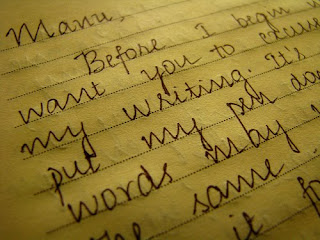 Manu,
Before I begin
want you to excuse
my writing. It's
put my pen
words
the same
it